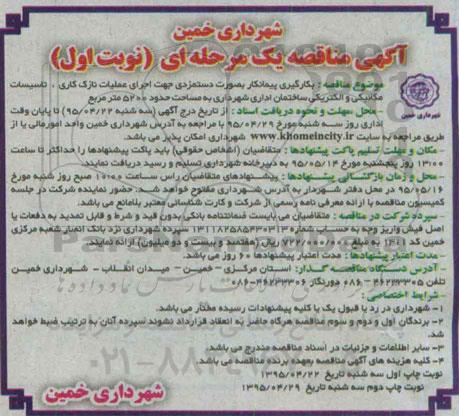 شهرداری خمین
آگهی مناقصه یک مرحله ای (نوبت اول)
شهرداری خمین
موضوع مناقصه : بکارگیری پیمانکار بصورت دستمزدی جهت اجرای عملیات نازک کاری ، تاسیسات
مکانیکی و الکتریکی ساختمان اداری شهرداری به مساحت حدود ۵۲۰۰ متر مربع
محل ،مهلت و نحوه دریافت اسناد : از تاریخ درج آگهی (سه شنبه ۹۵/۰۴/۲۲) تا پایان وقت
اداری روز سه شنبه مورخ ۹۵/۰۴/۲۹ با مراجعه به آدرس شهرداری خمین واحد امورمالی یا از
طریق مراجعه به سایت www.khomeincity.ir شهرداری امکان پذیر می باشد.
مکان و مهلت تسلیم پاکت پیشنهادها : متقاضیان (اشخاص حقوقی) باید پاکت پیشنهادها را حداکثر تا ساعت
۱۳:۰۰ روز پنجشنبه مورخ ۹۵/۰۵/۱۴ به دبیرخانه شهرداری تسلیم و رسید دریافت نمایند.
محل و زمان بازگشائی پیشنهادها : پیشنهادهای متقاضیان راس ساعت ۱۰:۰۰ صبح روز شنبه مورخ
۹۵/۰۵/۱۶ در محل دفتر شهردار به آدرس شهرداری مفتوح خواهد شد. حضور نماینده شرکت در جلسه
کمیسیون مناقصه با ارائه معرفی نامه رسمی از شرکت و کارت شناسائی معتبر بلامانع می باشد.
سپرده شرکت در مناقصه : متقاضیان می بایست ضمانتنامه بانکی بدون قید و شرط و قابل تمدید به دفعات یا
اصل فیش واریز وجه به حساب شماره ۱۳۱۱۸۲۵۸۵۴۳۰۳۱۳ سپرده شهرداری نزد بانک انصار شعبه مرکزی
خمین کد ۱۳۰۱ به مبلغ ۷۲۲/۰۰۰/۰۰۰ ریال (هفتصد و بیست و دو میلیون) ارائه نمایند.
مدت اعتبار پیشنهادها : مدت اعتبار پیشنهادها ۶۰ روز می باشد.
آدرس دستگاه مناقصه گذار: استان مرکزی – خمین – میدان انقلاب – شهرداری خمین
تلفن ۴۶۲۲۳۳۰۵-۰۸۶ دورنگار ۴۶۲۲۳۳۰۶-۰۸۶
شرایط اختصاصی :
۱- شهرداری در رد یا قبول یک یا کلیه پیشنهادات رسیده مختار می باشد.
۲- برندگان اول و دوم و سوم مناقصه هرگاه حاضر به انعقاد قرارداد نشوند سپرده آنان به ترتیب ضبط خواهد شد.
۳- سایر اطلاعات و جزئیات در اسناد مناقصه مندرج می باشد.
۴- کلیه هزینه های آگهی مناقصه بعهده برنده مناقصه می باشد.
نوبت چاپ اول سه شنبه تاریخ ۱۳۹۵/۰۴/۲۲
نوبت چاپ دوم سه شنبه تاریخ ۱۳۹۵/۰۴/۲۹
شهرداری خمین